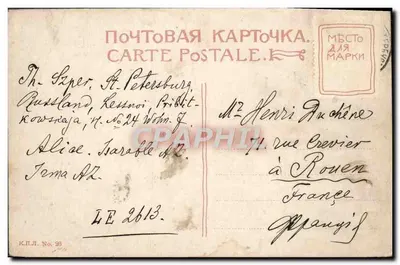 ПОЧТОВАЯ КАРТОЧКА.
CARTE POSTALE.
МѢСТО
ДЛЯ
МАРКИ
Th. Szper, St. Petersburg,
Russland, Lesnoi, Pritit-
kowskaja, N. No 24 Wohn. 7
Alice. Isarable AZ.
Irma AZ
LE 2613.
Mr Henri Duchêne
71. rue Crevier
à Rouen
France
Францiя
CARTE
PRAIRIAL
К.Б.Л. No. 20